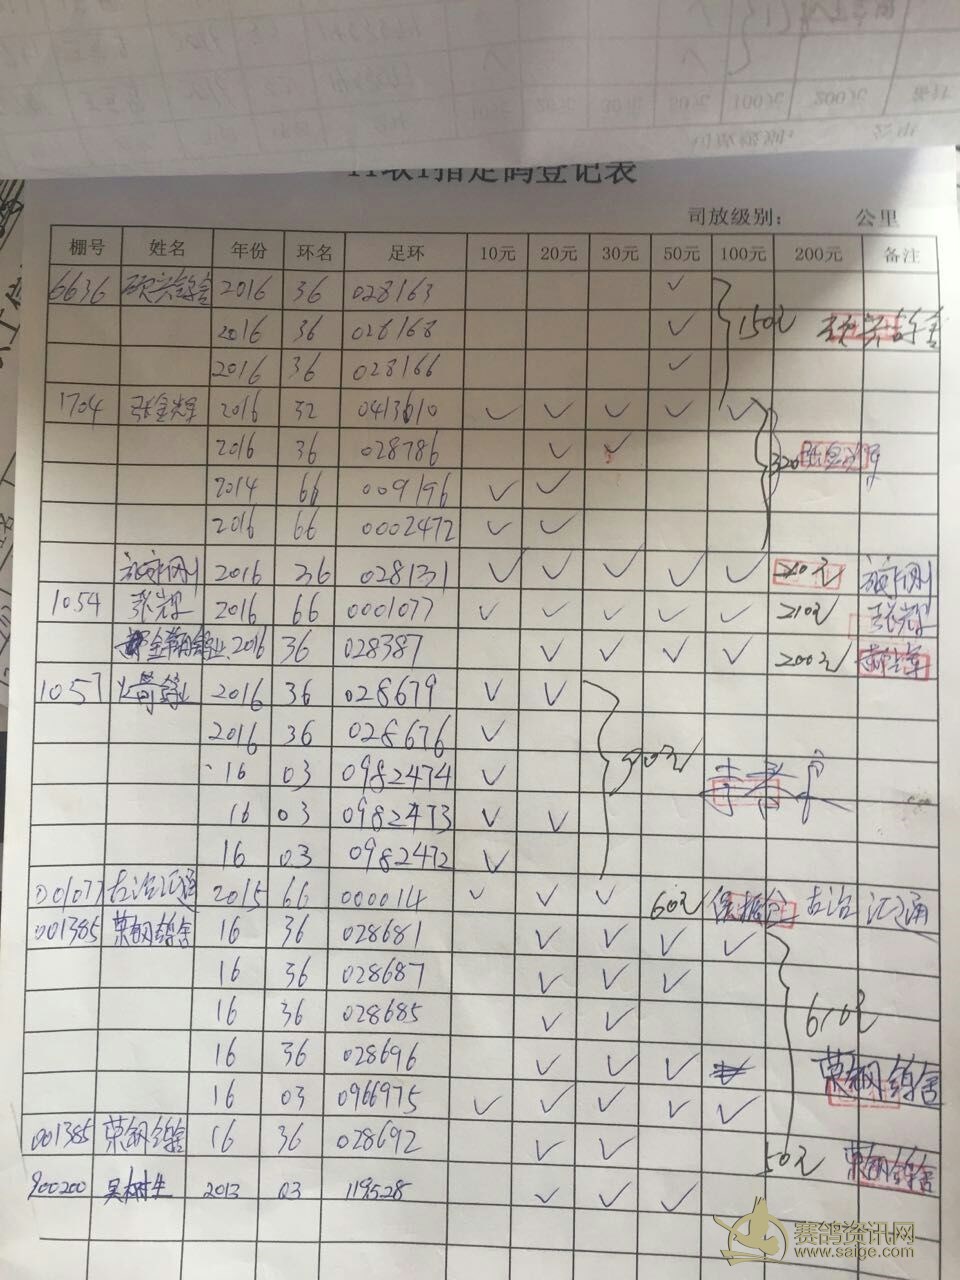 11取1指定鸽登记表
司放级别： 公里
棚号 姓名 年份 环名 足环 10元 20元 30元 50元 100元 200元 备注
6636 2016 36 028163 ✓
2016 36 028168 ✓ 150元
2016 36 028166 ✓
1704 张金辉 2016 32 0413610 ✓ ✓ ✓ ✓ ✓
2016 36 028786 ✓ ✓ 320 张金辉
2014 66 009196 ✓ ✓
2016 66 0002472 ✓ ✓
2016 36 028131 ✓ ✓ ✓ ✓ ✓ 210元
1054 张辉 2016 66 0001077 ✓ ✓ ✓ ✓ ✓ 210元 张辉
2016 36 028387 ✓ ✓ ✓ ✓ 200元
1057 2016 36 028679 ✓ ✓
2016 36 028676 ✓
16 03 0982474 ✓ 90元
16 03 0982473 ✓ ✓
16 03 0982472 ✓
001077 古冶汇通 2015 66 000014 ✓ ✓ ✓ 60元 古冶汇通
001385 荣钢鸽舍 16 36 028681 ✓ ✓ ✓ ✓
16 36 028687 ✓ ✓ ✓
16 36 028685 ✓ ✓ 610元
16 36 028696 ✓ ✓ ✓ 荣钢鸽舍
16 03 0966975 ✓ ✓ ✓ ✓ ✓
001385 荣钢鸽舍 16 36 028692 ✓ ✓ 50元 荣钢鸽舍
900200 吴树生 2013 03 119528 ✓ ✓ ✓
赛鸽资讯网
www.saige.com